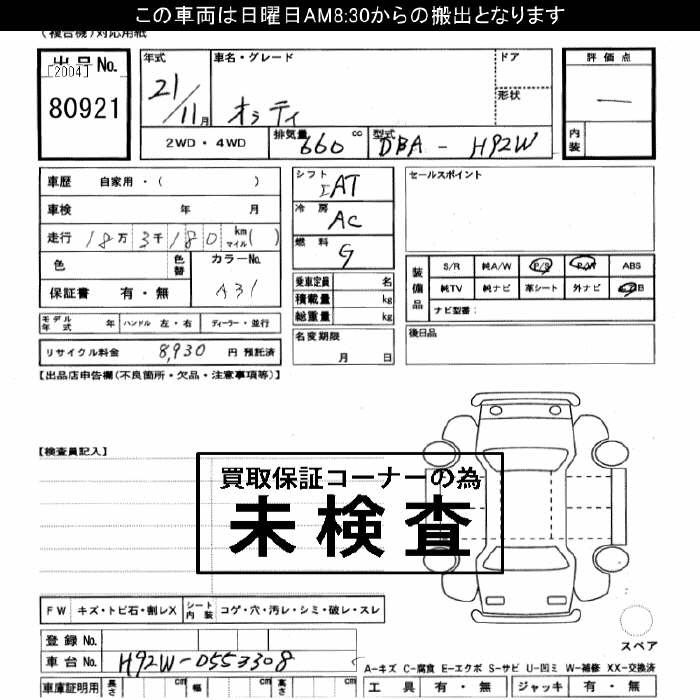 この車両は日曜日AM8:30からの搬出となります
(複合機)対応用紙
出品No.
[2004]
80921
年式
21/11月
車名・グレード
オッティ
ドア
形状
評価点
—
内装
2WD・4WD
排気量 660 cc
型式 DBA - H92W
車歴 自家用・( )
車検 年 月
走行 18万3千180 km マイル( )
色
色替
カラーNo.
A31
保証書 有・無
シフト
IAT
冷房
AC
燃料
G
乗車定員 名
積載量 kg
総重量 kg
セールスポイント
装備品
S/R 純A/W P/S P/W ABS
純TV 純ナビ 革シート 外ナビ B
ナビ型番:
モデル年式 年 ハンドル 左・右 ディーラー・並行
リサイクル料金 8,930 円 預託済
名変期限
月 日
後日品
【出品店申告欄(不良箇所・欠品・注意事項等)】
【検査員記入】
買取保証コーナーの為
未検査
FW キズ・トビ石・割レX シート内装 コゲ・穴・汚レ・シミ・破レ・スレ
スペア
登録No.
車台No. H92W-0553308
A-キズ C-腐食 E-エクボ S-サビ U-凹ミ W-補修 XX-交換済
車庫証明用 長さ cm 幅 cm 高さ cm
工具 有・無 ジャッキ 有・無